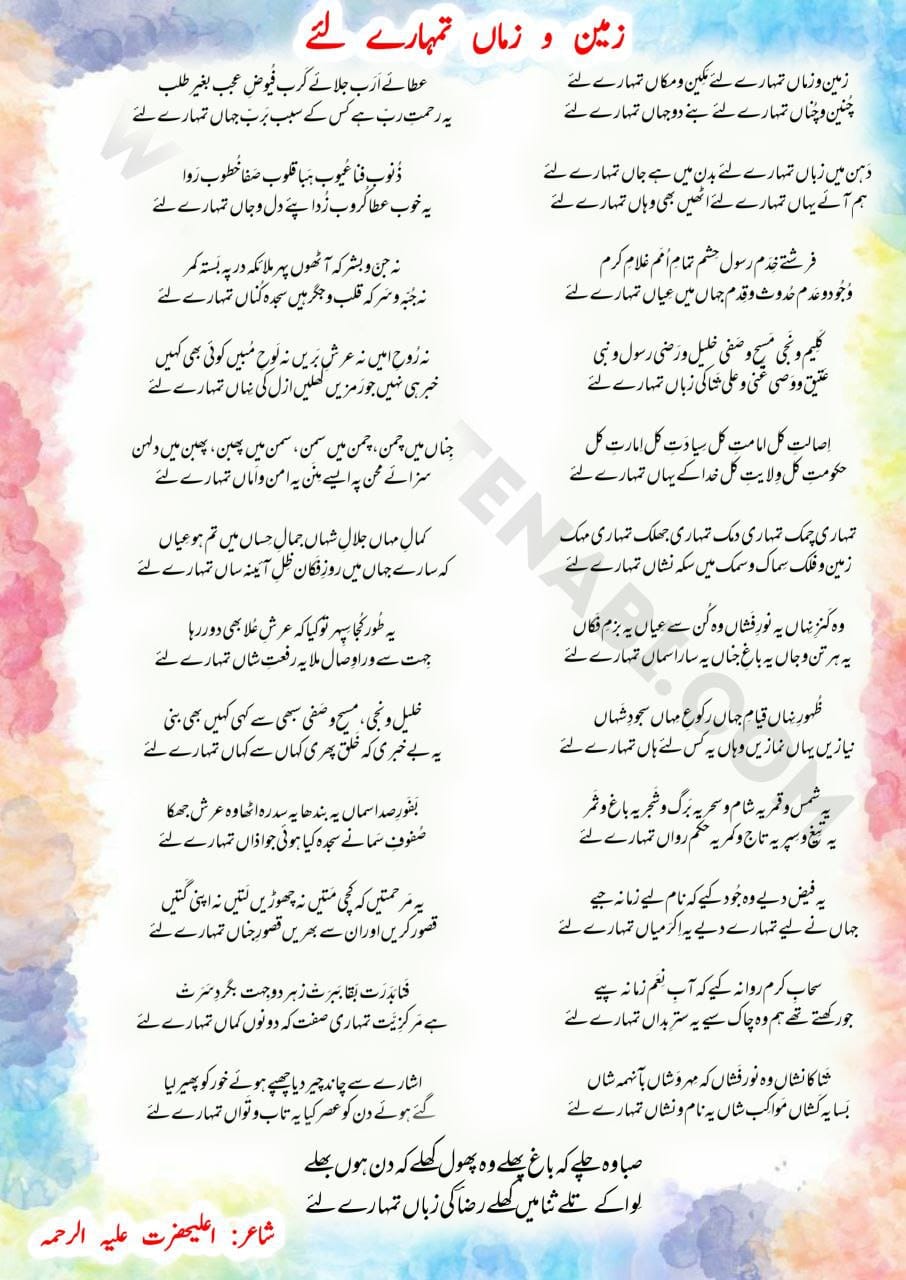 زمین و زماں تمہارے لئے
زمین و زماں تمہارے لئے مکین و مکاں تمہارے لئے
چُنین و چُناں تمہارے لئے بنے دو جہاں تمہارے لئے
دَہن میں زباں تمہارے لئے بدن میں ہے جاں تمہارے لئے
ہم آئے یہاں تمہارے لئے اٹھیں بھی وہاں تمہارے لئے
فرشتے خِدَم رسول حِشم تمامِ اُمَم غلامِ کرم
وُجُود و عَدم حُدوث و قِدم جہاں میں عِیاں تمہارے لئے
کلیم و نَجی مَسیح و صَفی خلیل و رَضی رسول و نبی
عتیق و وَصی غنی و علی ثنا کی زباں تمہارے لئے
اِصالتِ کل امامتِ کل سیادَتِ کل اِمارتِ کل
حکومتِ کل وِلایتِ کل خدا کے یہاں تمہارے لئے
تمہاری چمک تمہاری دمک تمہاری جھلک تمہاری مہک
زمین و فلک سِماک و سمک میں سکہ نشاں تمہارے لئے
وہ کنزِ نِہاں یہ نورِ فشاں وہ کُن سے عیاں یہ بزمِ فکاں
یہ ہر تن و جاں یہ باغِ جناں یہ سارا سماں تمہارے لئے
ظُہورِ نِہاں قیامِ جہاں رکوعِ مہاں سجودِ شَہاں
نیازیں یہاں نمازیں وہاں یہ کس لئے ہاں تمہارے لئے
یہ شمس و قمر یہ شام و سحر یہ بَرگ و شَجر یہ باغ و ثَمر
یہ تیغ و سِپر یہ تاج و کمر یہ حکم رواں تمہارے لئے
یہ فیض دیے وہ جُود کیے کہ نام لیے زمانہ جیے
جہاں نے لیے تمہارے دیے یہ اِکرَمیاں تمہارے لئے
سحابِ کرم روانہ کیے کہ آبِ نِعَم زمانہ پیے
جو رکھتے تھے ہم وہ چاک سیے یہ ستر بداں تمہارے لئے
ثنا کا نشاں وہ نور فشاں کہ مِہروَشاں بآنہمہ شاں
بَسا یہ کَشاں مَواکبِ شاں یہ نام و نشاں تمہارے لئے
عطائے اَرَب جلائے کَرب فُیوضِ عجب بغیر طلب
یہ رحمتِ ربّ ہے کس کے سبب بَربّ جہاں تمہارے لئے
ذُنوب فنا عُیوب ہَبا قلوب صَفا خُطوب رَوا
یہ خوب عطا کُروب زُدا پئے دل و جاں تمہارے لئے
نہ جن و بشر کہ آٹھوں پہر ملائکہ در پہ بَستہ کمر
نہ جُبّہ و سَر کہ قلب و جگر ہیں سجدہ کُناں تمہارے لئے
نہ رُوحِ امیں نہ عرشِ بَریں نہ لَوحِ مُبیں کوئی بھی کہیں
خبر ہی نہیں جو رَمزیں کُھلیں ازل کی نِہاں تمہارے لئے
جِناں میں چمن، چمن میں سمن، سمن میں پھبن، پھبن میں دلہن
سزائے محن پہ ایسے مِنَن یہ امن و اَماں تمہارے لئے
کمالِ مہاں جلالِ شہاں جمالِ حِساں میں تم ہو عِیاں
کہ سارے جہاں میں روزِ فکان ظِلِ آئینہ ساں تمہارے لئے
یہ طُور کُجا سِپہر تو کیا کہ عرشِ عُلا بھی دور رہا
جِہت سے ورا وِصال ملا یہ رفعتِ شاں تمہارے لئے
خلیل و نَجی، مسیح و صَفی سبھی سے کہی کہیں بھی بنی
یہ بے خبری کہ خَلق پھری کہاں سے کہاں تمہارے لئے
بَفَورِ صدا سماں یہ بندھا یہ سدرہ اٹھا وہ عرش جھکا
صُفوفِ سَما نے سجدہ کیا ہوئی جو اذاں تمہارے لئے
یہ مَرحمتیں کہ کچی مَتیں نہ چھوڑیں لَتیں نہ اپنی گَتیں
قصور کریں اور ان سے بھریں قصورِ جِناں تمہارے لئے
فَنا بَدَرَت بَقا بَبَرَت زِہر دو جِہت بگردِ سَرَت
ہے مَرکزِیَّت تمہاری صفت کہ دونوں کماں تمہارے لئے
اشارے سے چاند چیر دیا چھپے ہوئے خور کو پھیر لیا
گئے ہوئے دن کو عصر کیا یہ تاب و تَواں تمہارے لئے
صبا وہ چلے کہ باغ پھلے وہ پھول کھلے کہ دن ہوں بھلے
لِوا کے تلے ثنا میں کھلے رضاؔ کی زباں تمہارے لئے
شاعر: اعلیحضرت علیہ الرحمہ
TENARL.COM